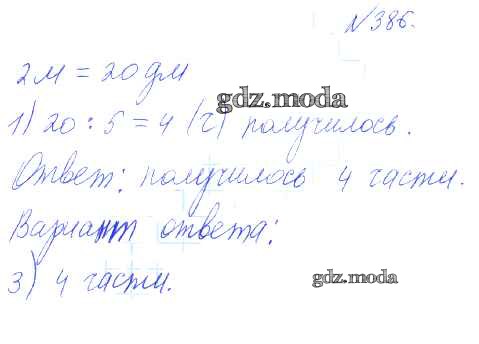 №386.
2м = 20дм
gdz.moda
1) 20 : 5 = 4 (ч) получилось.
Ответ: получилось 4 части.
Вариант ответа:
3) 4 части.
gdz.moda